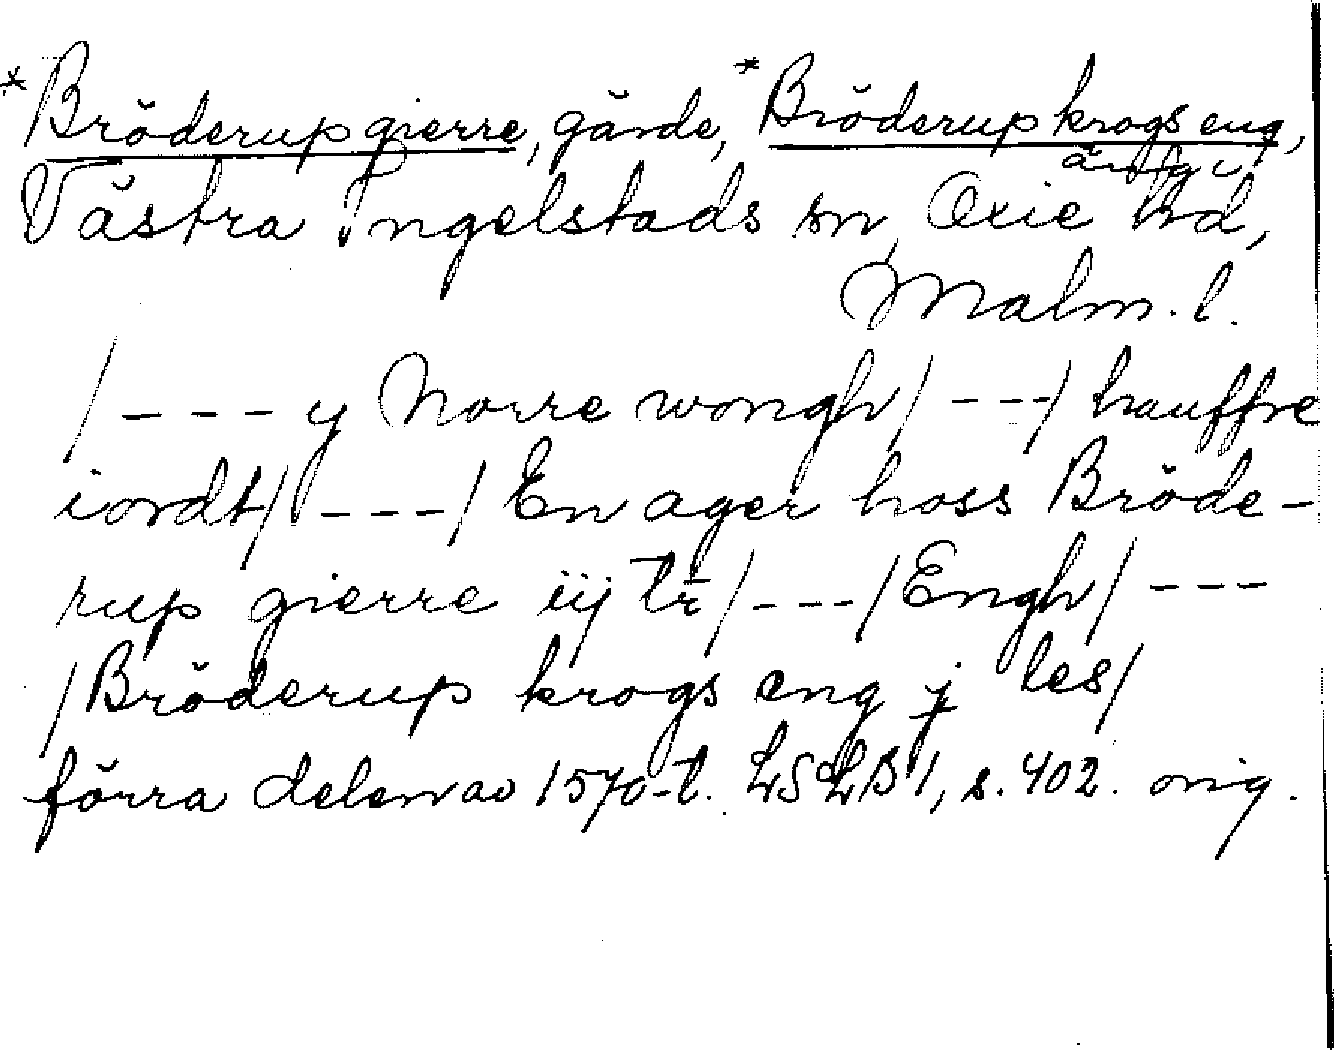 *Bröderup gierre, gärde, *Bröderup krogs eng,
äng i
Västra Ingelstads sn, Oxie hd,
Malm. l.
/---y Norre wongh/---/hauffre
iordt/---/En ager hoss Bröde-
rup gierre iij tr̄/---/Engh/---
/Bröderup krogs eng j les/
förra delen av 1570-t. LSLB 1, s. 402. orig.